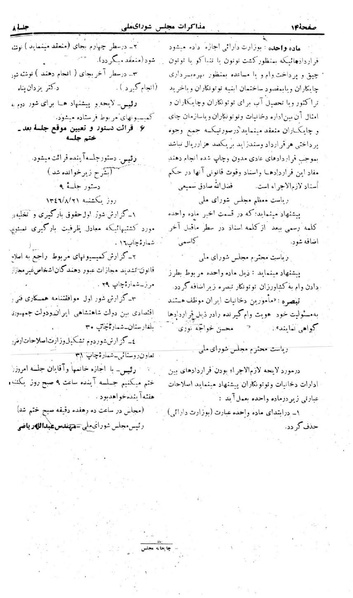 صفحهٔ ۱۴
مذاکرات مجلس شورای ملی
جلسهٔ ۸
ماده واحده - بوزارت دارائی اجازه داده میشود
قراردادهائیکه بمنظور کشت توتون یا تنباکو یا توتون
چپق و پرداخت وام و یا مساعده بمنظور بهره‌برداری
چایکاران و یا بمنظور ساختمان ابنیه توتونکاران و یا خرید
تراکتور و یا تحصیل آب برای توتونکاران و چایکاران و
امثال آن بین اداره دخانیات و توتونکاران و یا سازمان چای
و چایکاران منعقد مینماید در صورتیکه جمع وجوه
پرداختی هر قرارداد و سند زاید بر یکصد هزار ریال نباشد
بموجب قراردادهای عادی مدون و چاپ شده انجام دهند
مفاد این قراردادها و اسناد وقوت قانونی آنها در حکم
اسناد لازم‌الاجراء است. فضل‌الله صادق سمیعی
ریاست معظم مجلس شورای ملی
پیشنهاد مینماید: که در قسمت اخیر ماده واحده
کلمه رسمی بعد از کلمه اسناد در سطر ماقبل آخر
اضافه شود. کاسمی
ریاست محترم مجلس شورای ملی
پیشنهاد مینماید: ذیل ماده واحده مربوط بطرز
دادن وام به کشاورزان توتونکار تبصره زیر اضافه گردد.
تبصره: «مأمورین دخانیات ایران موظف هستند
به مسئولیت خود هویت وام گیرنده را در ذیل قراردادها
گواهی نمایند». محسن خواجه نوری
ریاست محترم مجلس شورای ملی
در مورد لایحه لازم‌الاجراء بودن قراردادهای بین
ادارات دخانیات و توتونکاران پیشنهاد مینماید اصلاحات
عبارتی زیر در ماده واحده بعمل آید:
۱- در ابتدای ماده واحده عبارت (بوزارت دارائی)
حذف گردد.
۲- در سطر چهارم بجای (منعقد مینماید) نوشته
شود (منعقد میگردد).
۳- در سطر آخر بجای (انجام دهند) نوشته شود
(انجام گیرد). دکتر یزدان پناه
رئیس- لایحه و پیشنهادها برای شور دوم به
کمیسیونهای مربوط فرستاده میشود.
۶- قرائت دستور و تعیین موقع جلسهٔ بعد -
ختم جلسه
رئیس- دستور جلسه آینده قرائت میشود.
(بشرح زیر خوانده شد)
دستور جلسه ۹
روز یکشنبه ۱۳۴۶/۸/۲۱
۱- گزارش شور اول حقوق بارگیری و تخلیه در
مورد کشتیهائیکه معادل ظرفیت بارگیری
شمارهٔ چاپ ۱۶.
۲- گزارش کمیسیونهای مربوط راجع به اصلاح
قانون تشدید مجازات عبور دهندگان اشخاص غیر مجاز از
مرز - شمارهٔ چاپ ۲۹.
۳- گزارش شور اول موافقتنامه همکاری فنی و
اقتصادی بین دولت شاهنشاهی ایران و دولت جمهوری
بلغارستان - شمارهٔ چاپ ۳۰
۴- گزارش شور دوم تشکیل وزارت اصلاحات ارضی و
تعاون روستائی - شمارهٔ چاپ ۳۱
رئیس- با اجازه خانمها و آقایان جلسه امروز را
ختم میکنیم جلسه آینده ساعت ۹ صبح روز یکشنبه
هفته آینده خواهد بود.
(مجلس در ساعت ده و هفده دقیقه صبح ختم شد)
رئیس مجلس شورای ملی - مهندس عبدالله ریاضی
چاپخانه مجلس